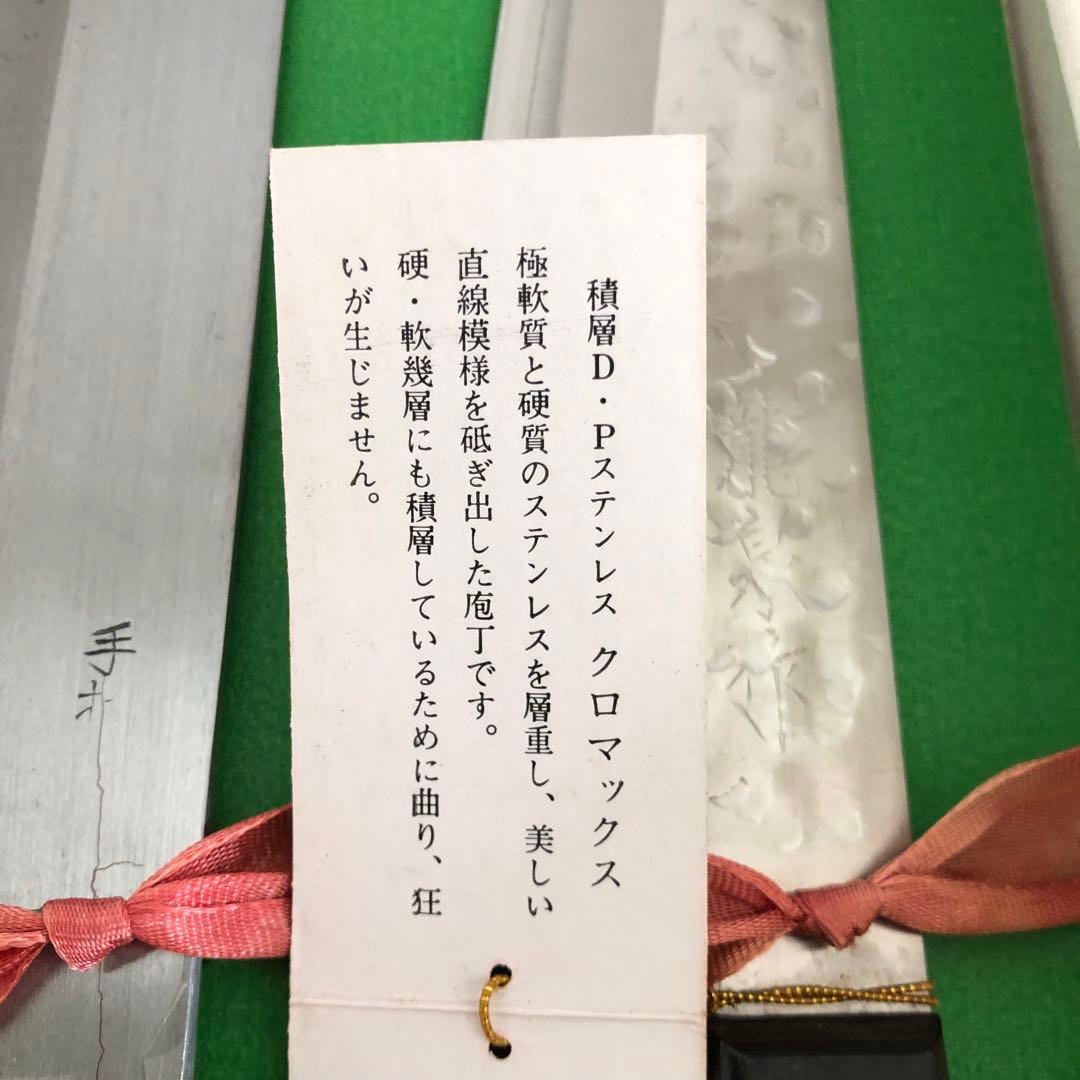 積層D・Pステンレス クロマックス
極軟質と硬質のステンレスを層重し、美しい
直線模様を砥ぎ出した庖丁です。
硬・軟幾層にも積層しているために曲り、狂
いが生じません。
手